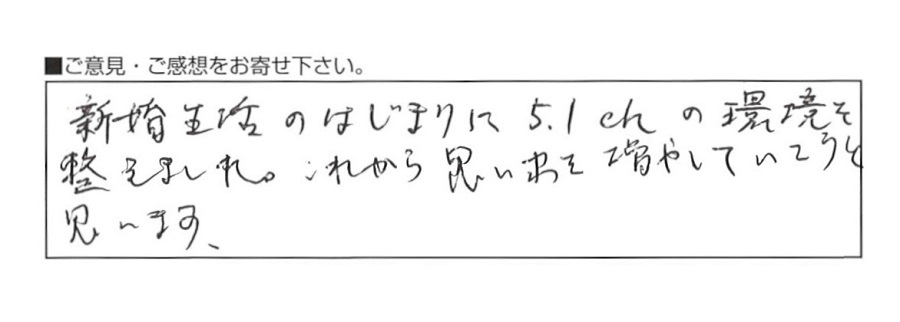 ■ご意見・ご感想をお寄せ下さい。
新婚生活のはじまりに5.1chの環境を
整えました。これから思い出を増やしていこうと
思います、